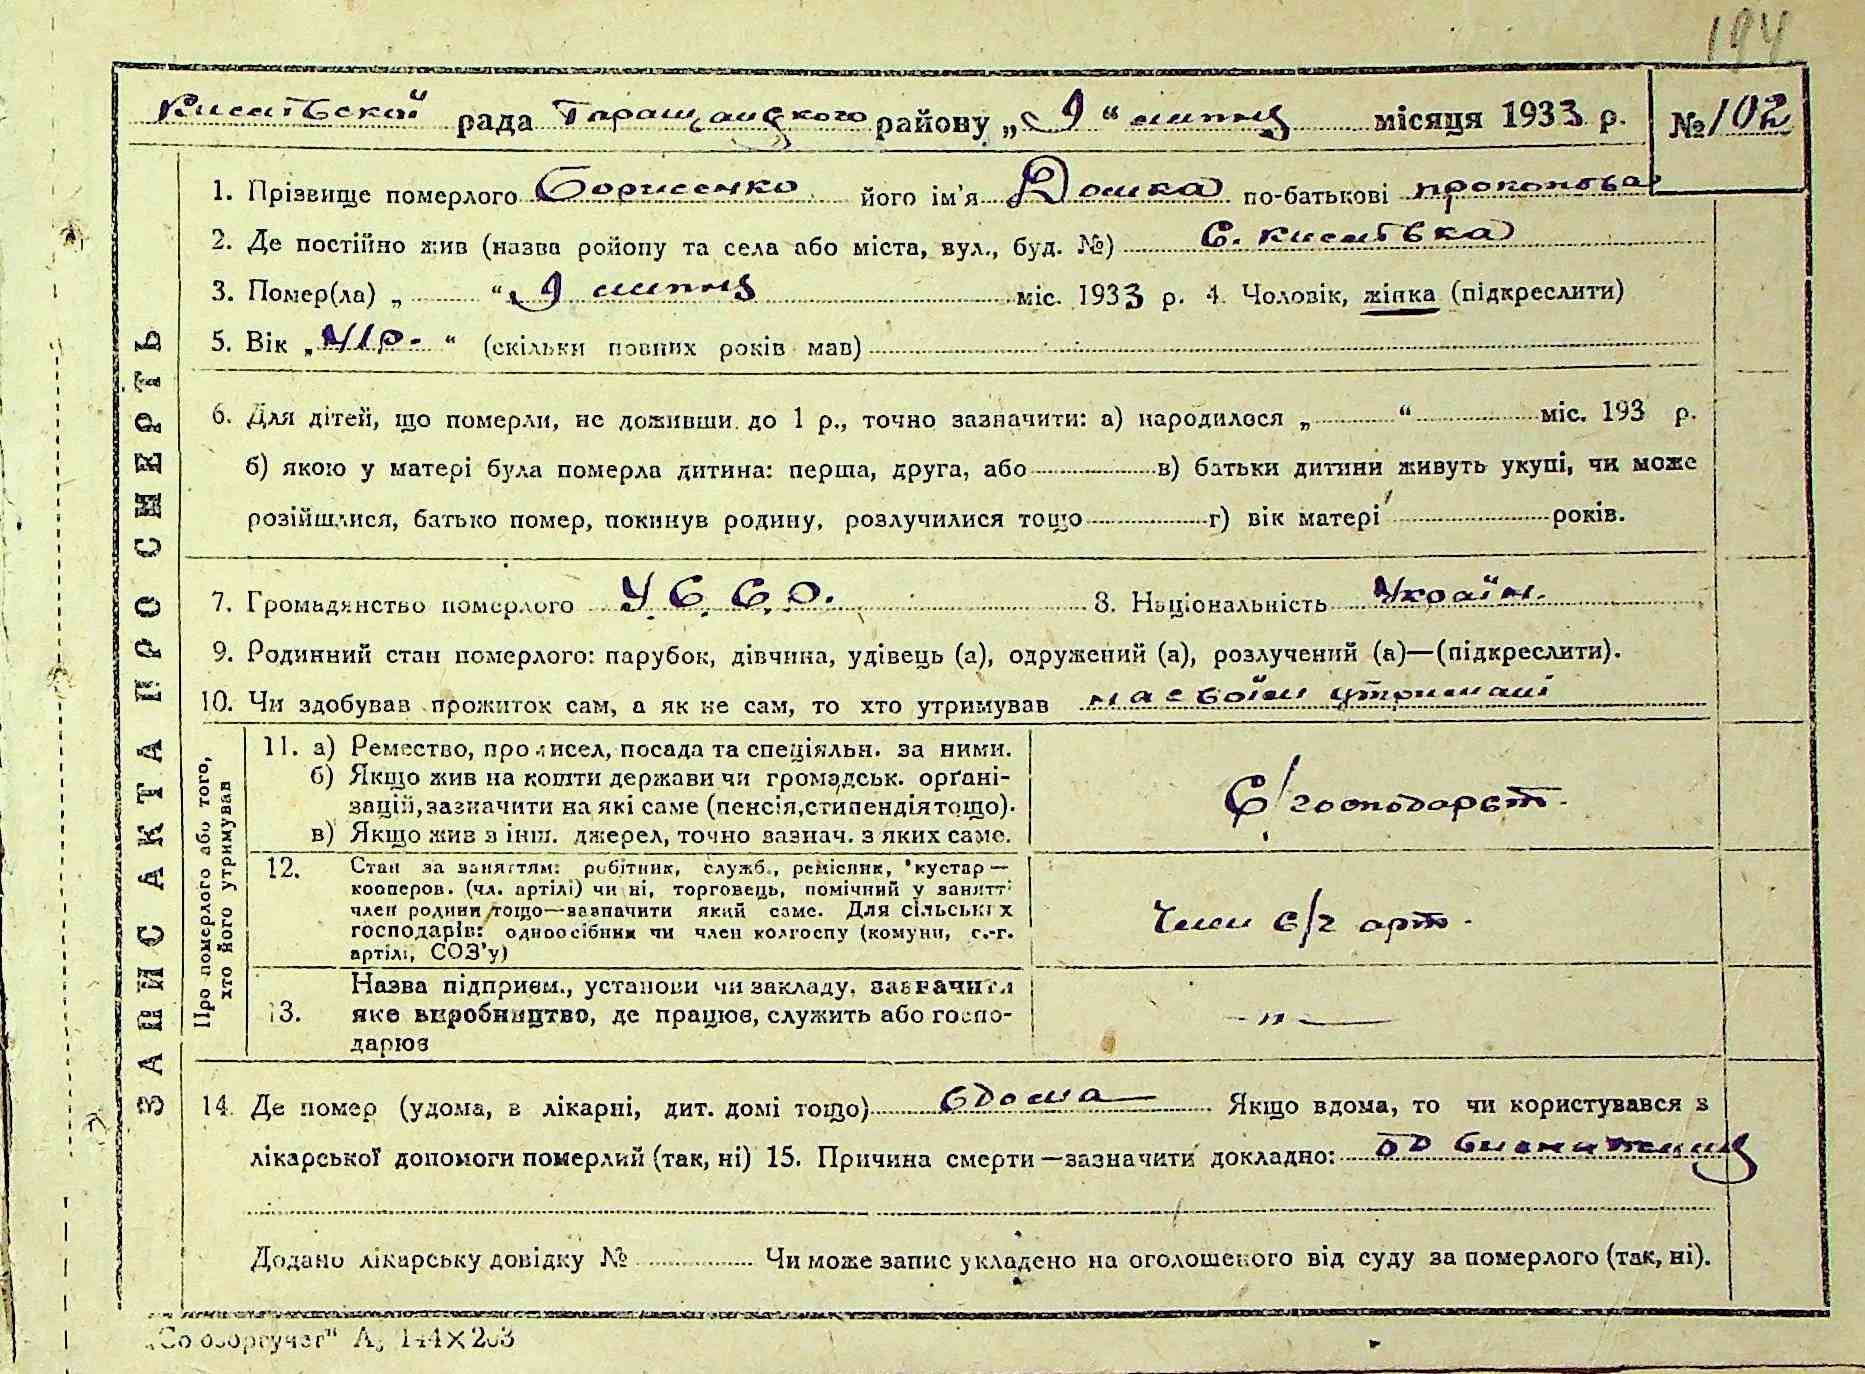 194
Киситвской рада Таращанского району „9“ липня місяця 1933 р. № 102
1. Прізвище померлого Борисенко його ім'я Домка по-батькові прокопова
2. Де постійно жив (назва ройопу та села або міста, вул., буд. №) С. киситвка
3. Помер(ла) „ “ 9 липня міс. 1933 р. 4. Чоловік, жінка (підкреслити)
5. Вік „41р.“ (скільки повних років мав)
6. Для дітей, що померли, не доживши до 1 р., точно зазначити: а) народилося „ “ міс. 193 р.
б) якою у матері була померла дитина: перша, друга, або в) батьки дитини живуть укупі, чи може
розійшлися, батько помер, покинув родину, розлучилися тощо г) вік матері років.
7. Громадянство померлого У С. С. Р. 8. Національність Україн.
9. Родинний стан померлого: парубок, дівчина, удівець (а), одружений (а), розлучений (а)—(підкреслити).
10. Чи здобував прожиток сам, а як не сам, то хто утримував на своїм утримані
ЗАПИС АКТА ПРО СМЕРТЬ
Про померлого або того,
хто його утримував
11. а) Ремество, промисел, посада та спеціяльн. за ними.
б) Якщо жив на кошти держави чи громадськ. орґані-
зацій, зазначити на які саме (пенсія, стипендія тощо).
в) Якщо жив з інш. джерел, точно зазнач. з яких саме.
С/господарст.
12. Стан за заняттям: робітник, служб., ремісник, кустар—
кооперов. (чл. артілі) чи ні, торговець, помічний у занятті
член родини тощо—зазначити який саме. Для сільських
господарів: одноосібник чи член колгоспу (комуни, с.-г.
артілі, СОЗ'у)
Член с/г арт.
13. Назва підприєм., установи чи закладу, зазначити
яке виробництво, де працює, служить або госпо-
дарює
-"-
14. Де помер (удома, в лікарні, дит. домі тощо) вдома Якщо вдома, то чи користувався з
лікарської допомоги померлий (так, ні) 15. Причина смерти—зазначити докладно: од виснаженця
Додано лікарську довідку № Чи може запис укладено на оголошеного від суду за померлого (так, ні).
„Союзоргучет“ А5 144×203